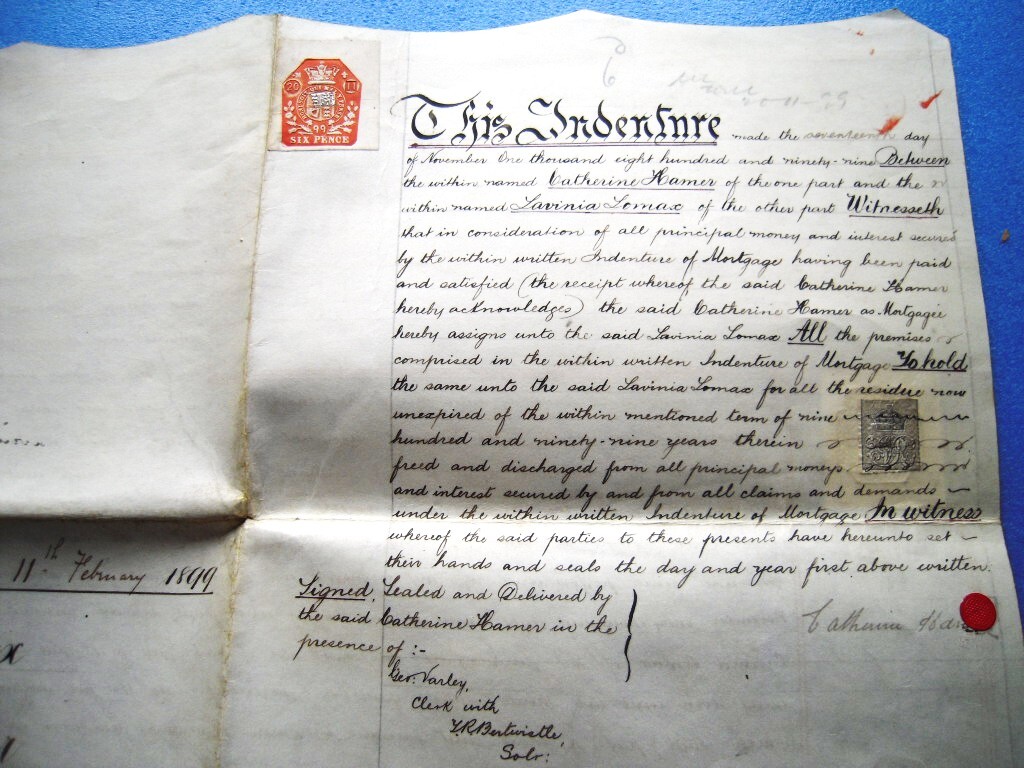 20 11
99
SIX PENCE
20-11-99
This Indenture made the seventeenth day
of November One thousand eight hundred and ninety-nine Between
the within named Catherine Hamer of the one part and the
within named Lavinia Lomax of the other part Witnesseth
that in consideration of all principal money and interest secured
by the within written Indenture of Mortgage having been paid
and satisfied (the receipt whereof the said Catherine Hamer
hereby acknowledges) the said Catherine Hamer as Mortgagee
hereby assigns unto the said Lavinia Lomax All the premises
comprised in the within written Indenture of Mortgage To hold
the same unto the said Lavinia Lomax for all the residue now
unexpired of the within mentioned term of nine
hundred and ninety-nine years therein
freed and discharged from all principal moneys
and interest secured by and from all claims and demands
under the within written Indenture of Mortgage In witness
whereof the said parties to these presents have hereunto set
their hands and seals the day and year first above written.
11th February 1899
Signed, Sealed and Delivered by
the said Catherine Hamer in the
presence of :-
Catherine Hamer
Geo: Varley,
Clerk with
T.R. Bertwistle,
Solr: